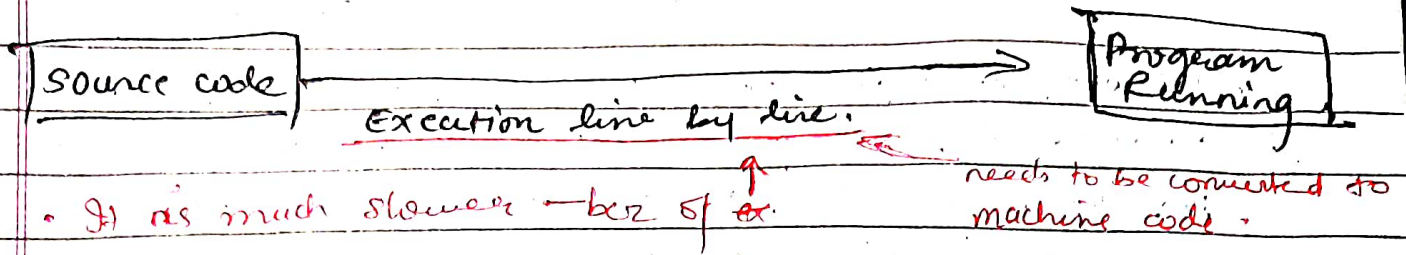 source code
Program
Running
Excation line by line.
needs to be converted to
machine code.
• It is much slower - bcz of ex.